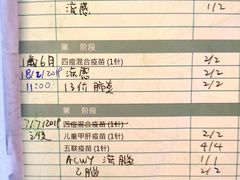 流感 1/2
第 阶段
1岁6月 四痘混合疫苗(1针) 2/2
18/2/2019 流感 2/2
11:00 13价肺炎
第 阶段
7/7/2019 四痘混合疫苗(1针)
儿童甲肝疫苗(1针) 2/2
五联疫苗(1针) 4/4
ACWY 流脑 1/1
乙脑 2/2